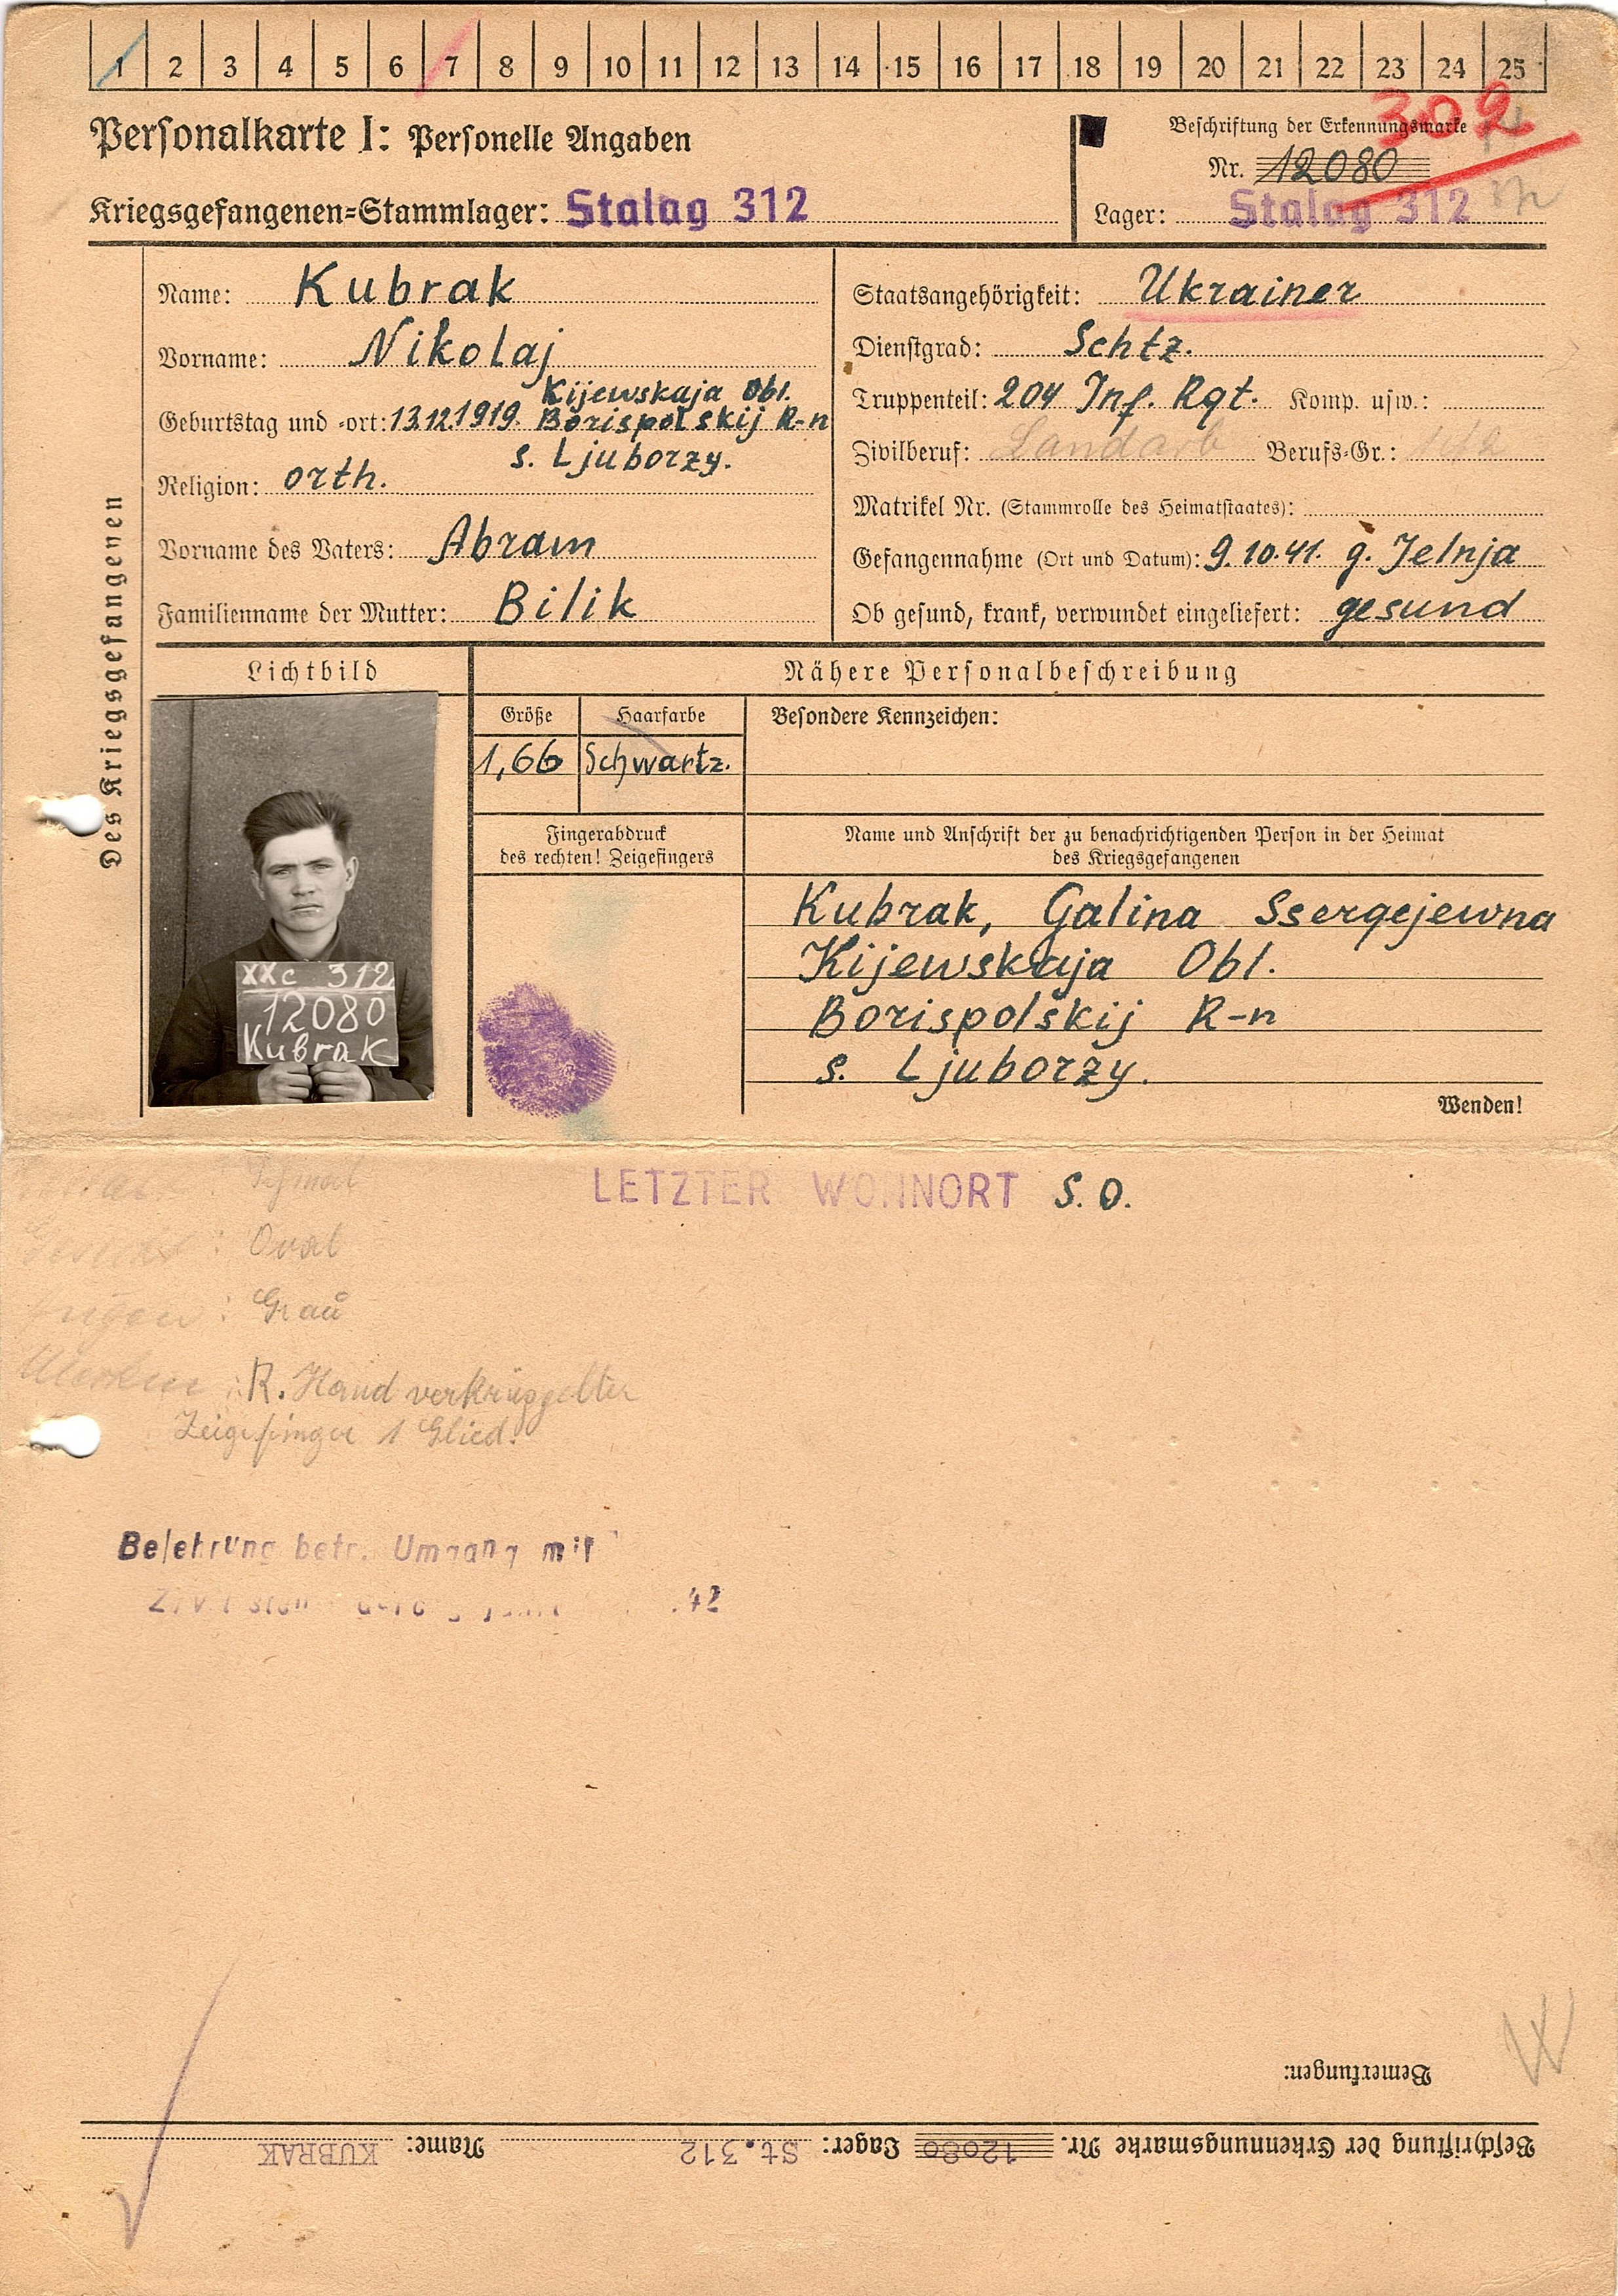 1 2 3 4 5 6 7 8 9 10 11 12 13 14 15 16 17 18 19 20 21 22 23 24 25
Personalkarte I: Personelle Angaben
Kriegsgefangenen=Stammlager: Stalag 312
Beschriftung der Erkennungsmarke
302
Nr. 12080
Lager: Stalag 312
Des Kriegsgefangenen
Name: Kubrak
Vorname: Nikolaj
Geburtstag und =ort: 13.12.1919. Kijewskaja Obl.
Borispolskij R-n
s. Ljuborzy.
Religion: orth.
Vorname des Vaters: Abram
Familienname der Mutter: Bilik
Staatsangehörigkeit: Ukrainer
Dienstgrad: Schtz.
Truppenteil: 204 Inf. Rgt. Komp. usw.:
Zivilberuf: Landarb Berufs=Gr.:
Matrikel Nr. (Stammrolle des Heimatstaates):
Gefangennahme (Ort und Datum): 9.10.41. g. Jelnja
Ob gesund, krank, verwundet eingeliefert: gesund
Lichtbild
XXc 312
12080
Kubrak
Nähere Personalbeschreibung
Größe Haarfarbe Besondere Kennzeichen:
1,66 Schwartz.
Fingerabdruck
des rechten! Zeigefingers
Name und Anschrift der zu benachrichtigenden Person in der Heimat
des Kriegsgefangenen
Kubrak, Galina Ssergejewna
Kijewskaja Obl.
Borispolskij R-n
s. Ljuborzy.
Wenden!
LETZTER WOHNORT S. O.
: Oval
Augen : Grau
: R. Hand verkrüppelter
Zeigefinger 1 Glied.
Belehrung betr. Umgang mit
.42
W
Bemerkungen:
Beschriftung der Erkennungsmarke Nr. 12080 Lager: St.312 Name: KUBRAK